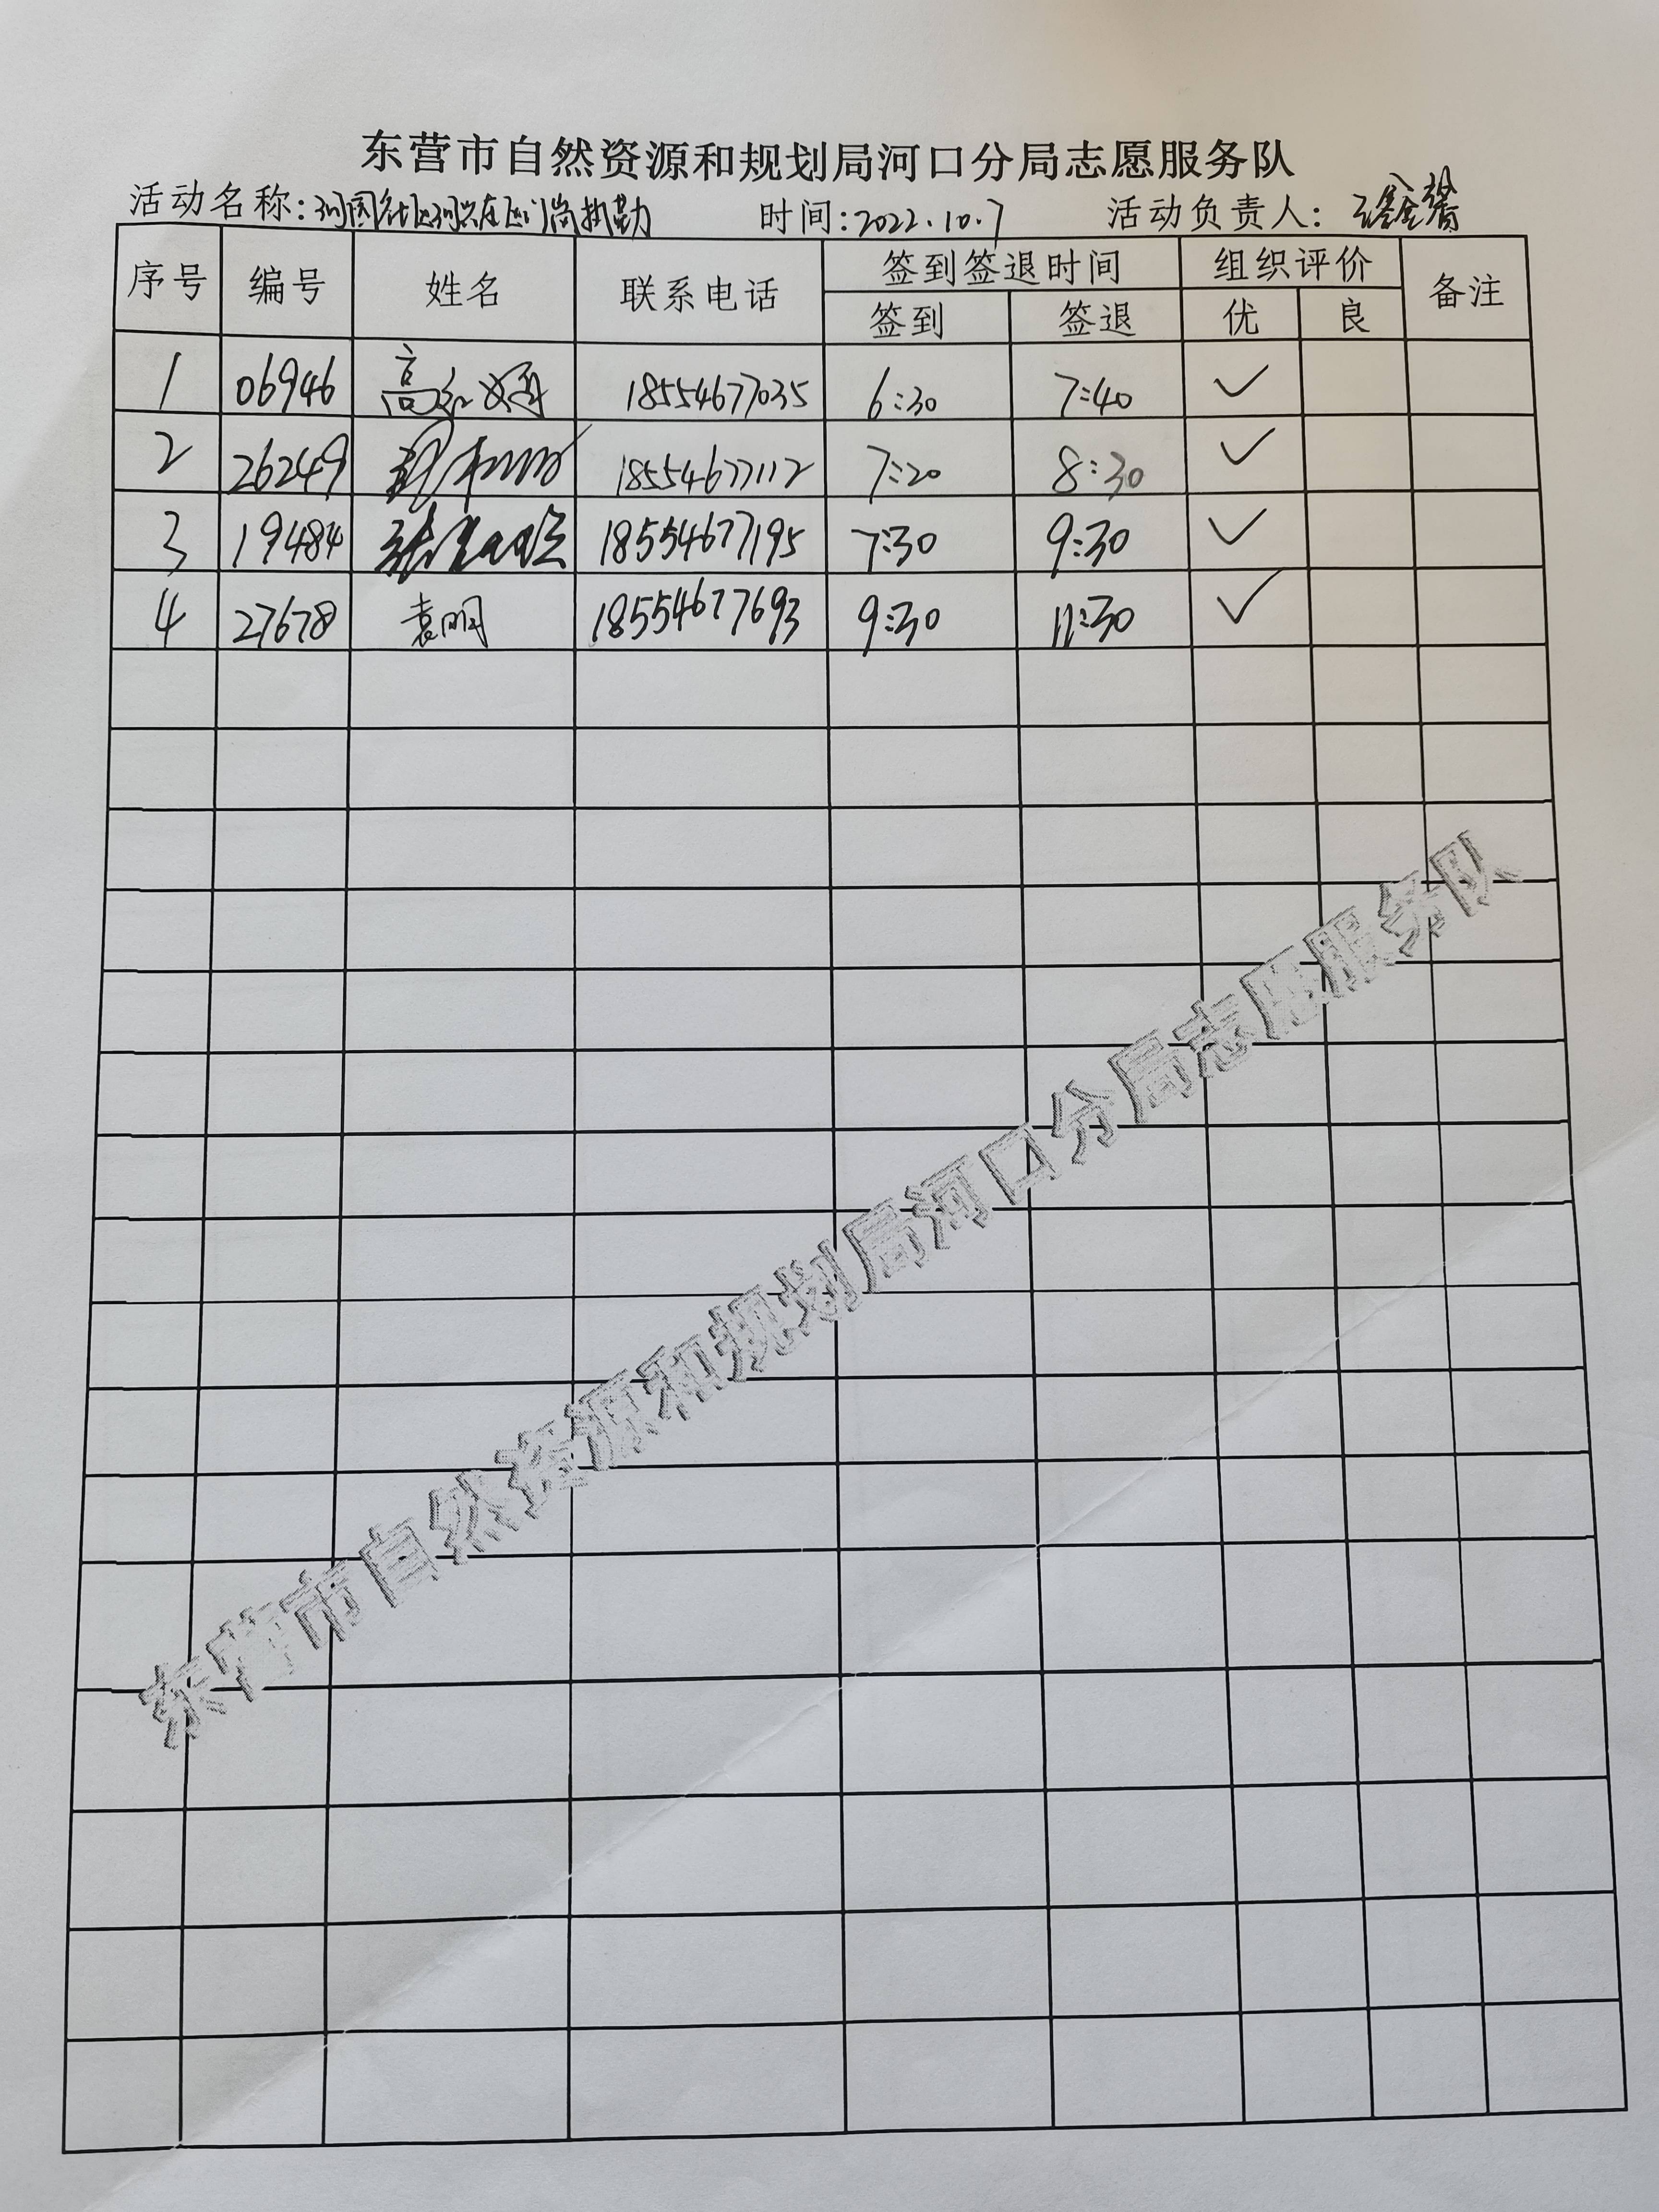 东营市自然资源和规划局河口分局志愿服务队
活动名称: 时间:2022.10.7 活动负责人:
序号 编号 姓名 联系电话 签到签退时间 组织评价 备注
签到 签退 优 良
1 06946 18554677035 6:30 7:40 ✓
2 26249 18554677112 7:20 8:30 ✓
3 19484 18554677195 7:30 9:30 ✓
4 27678 袁明 18554677693 9:30 11:30 ✓
东营市自然资源和规划局河口分局志愿服务队